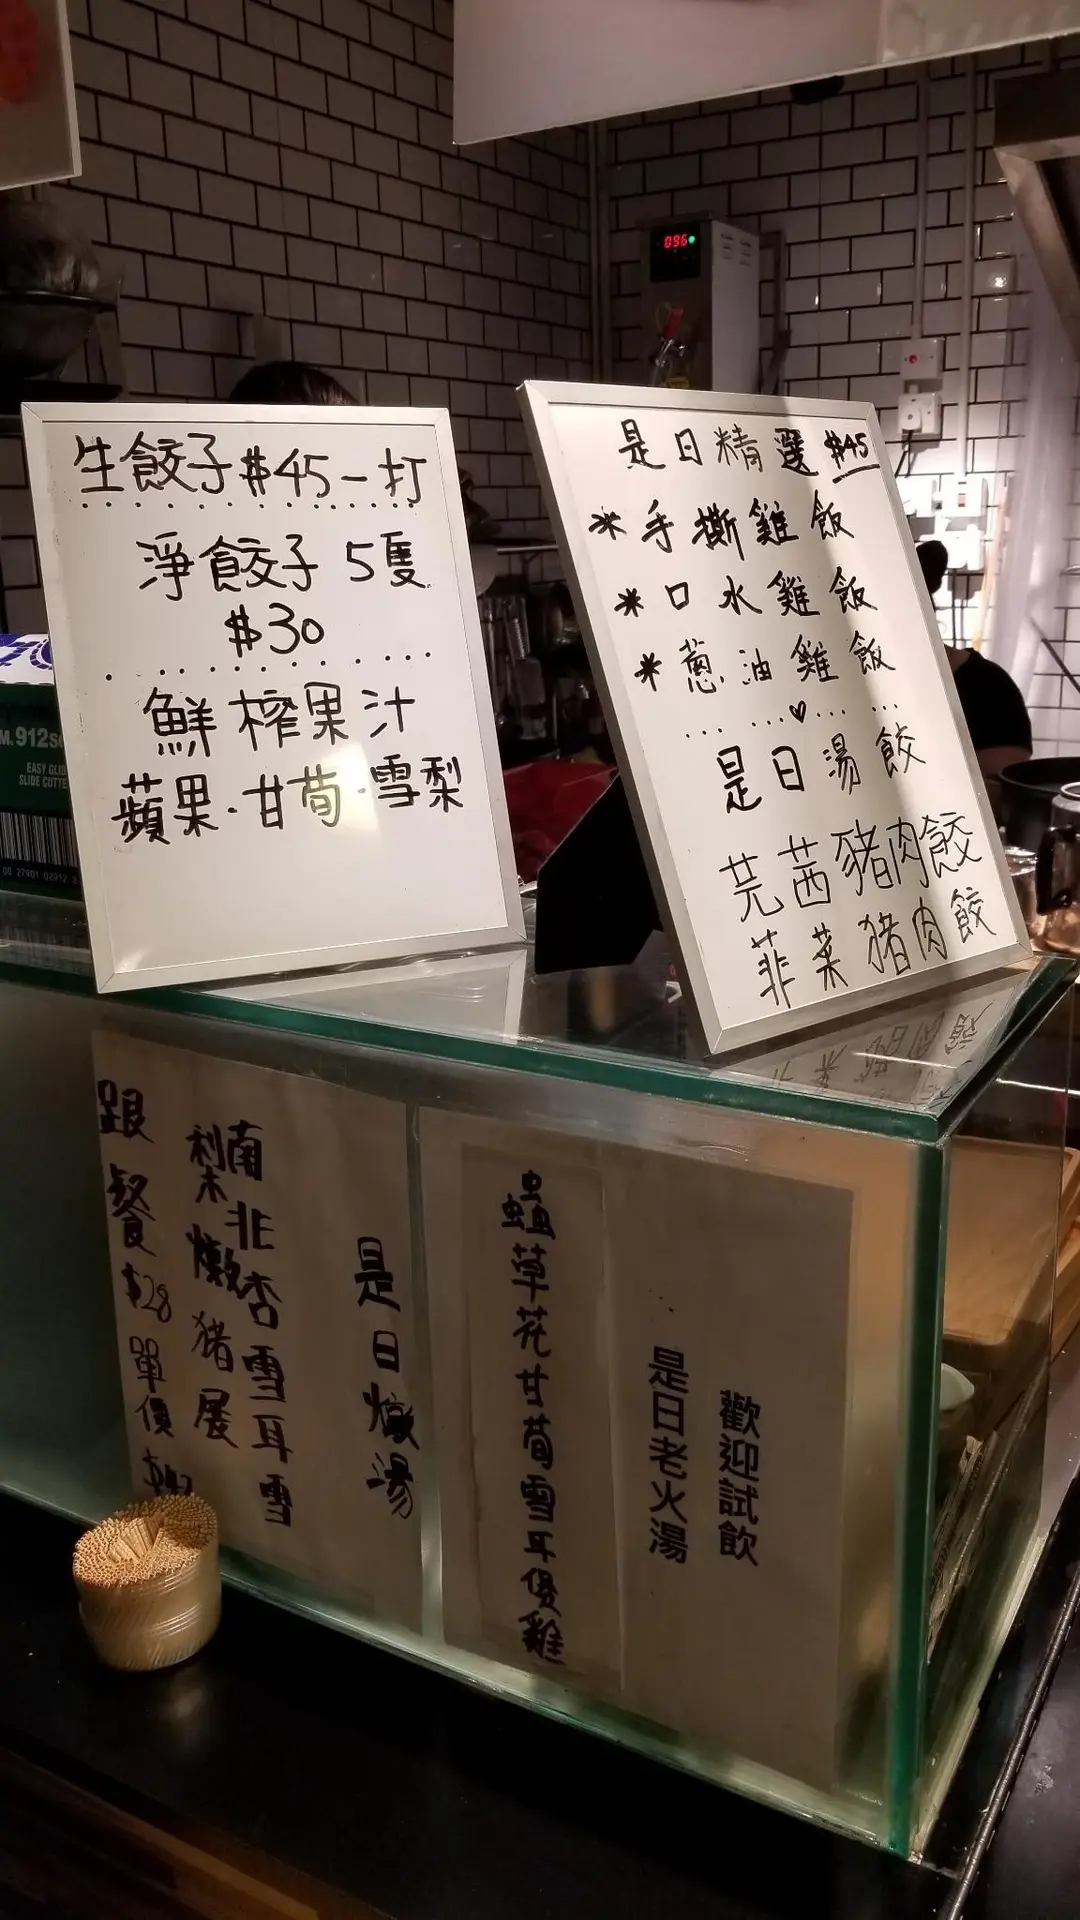 生餃子$45一打
淨餃子 5隻
$30
鮮榨果汁
蘋果·甘荀·雪梨
是日精選 $45
*手撕雞飯
*口水雞飯
*蔥油雞飯
是日湯餃
芫茜豬肉餃
韮菜豬肉餃
096
912
EASY GLID
SLIDE CUTTE
00 27901 02912 8
歡迎試飲
是日老火湯
蟲草花甘荀雪耳煲雞
是日燉湯
南北杏雪耳雪
梨燉豬展
跟餐$28單價